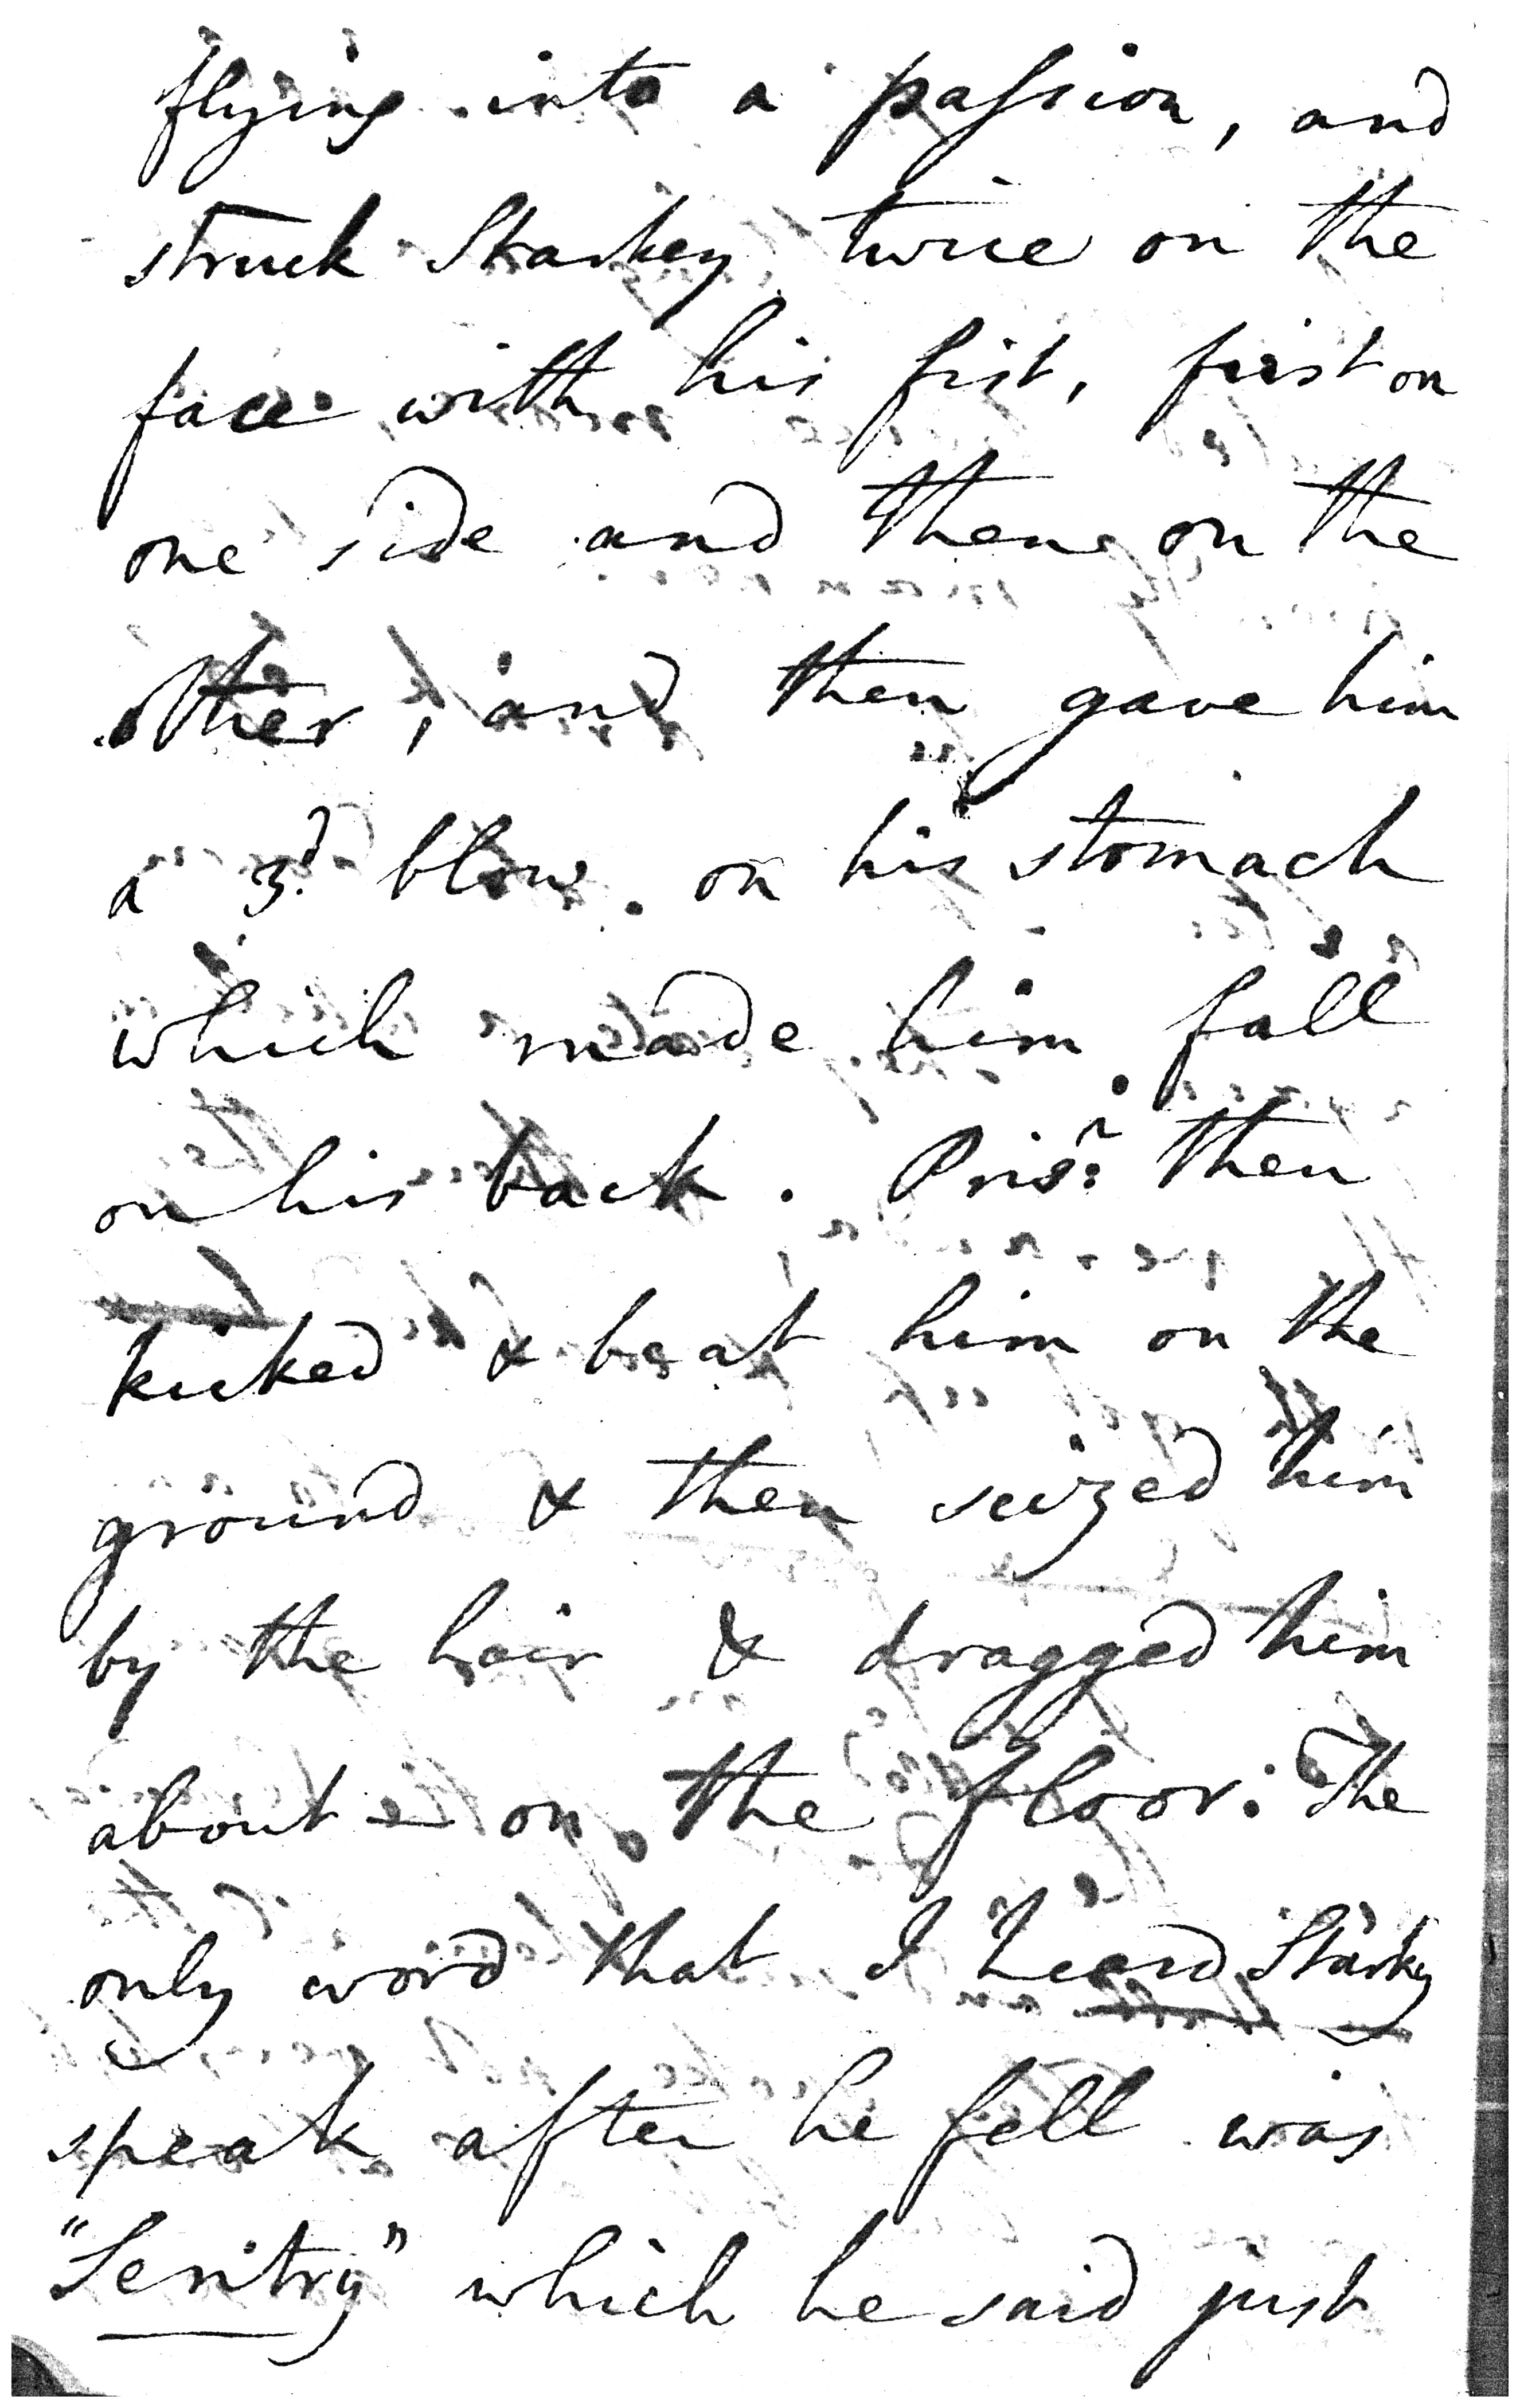 flying into a passion, and
struck Starkey twice on the
face with his fist, first on
one side and then on the
other, and then gave him
a 3d blow on his stomach
which made him fall
on his back. Prisr then
kicked & beat him on the
ground & then seized him
by the hair & dragged him
about on the floor. The
only word that I heard Starky
speak after he fell was
"Sentry" which he said just